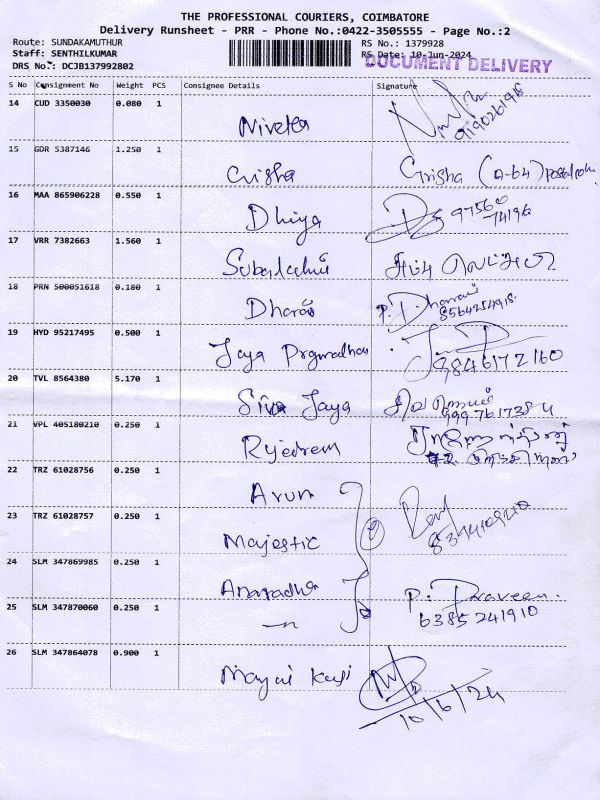 THE PROFESSIONAL COURIERS, COIMBATORE
Delivery Runsheet - PRR - Phone No.:0422-3505555 - Page No.:2
Route: SUNDAKAMUTHUR RS No.: 1379928
Staff: SENTHILKUMAR RS Date: 10-Jun-2024
DRS No.: DCJB137992802 DOCUMENT DELIVERY
S No Consignment No Weight PCS Consignee Details Signature
14 CUD 3350030 0.080 1
Niveta 9190261918
15 GDR 5387146 1.250 1
Girisha Girisha
16 MAA 865906228 0.550 1
Dhiya 97560
74196
17 VRR 7382663 1.560 1
18 PRN 500051618 0.180 1
P.
8564254918
19 HYD 95217495 0.500 1
Jaya
9846172160
20 TVL 8564380 5.170 1
Siva Jaya சிவ
21 VPL 405180210 0.250 1
22 TRZ 61028756 0.250 1
Arun
23 TRZ 61028757 0.250 1
Majestic 8394109210
24 SLM 347869985 0.250 1
Anuradha P. Praveen
25 SLM 347870060 0.250 1
6385241910
26 SLM 347864078 0.900 1
10/6/24